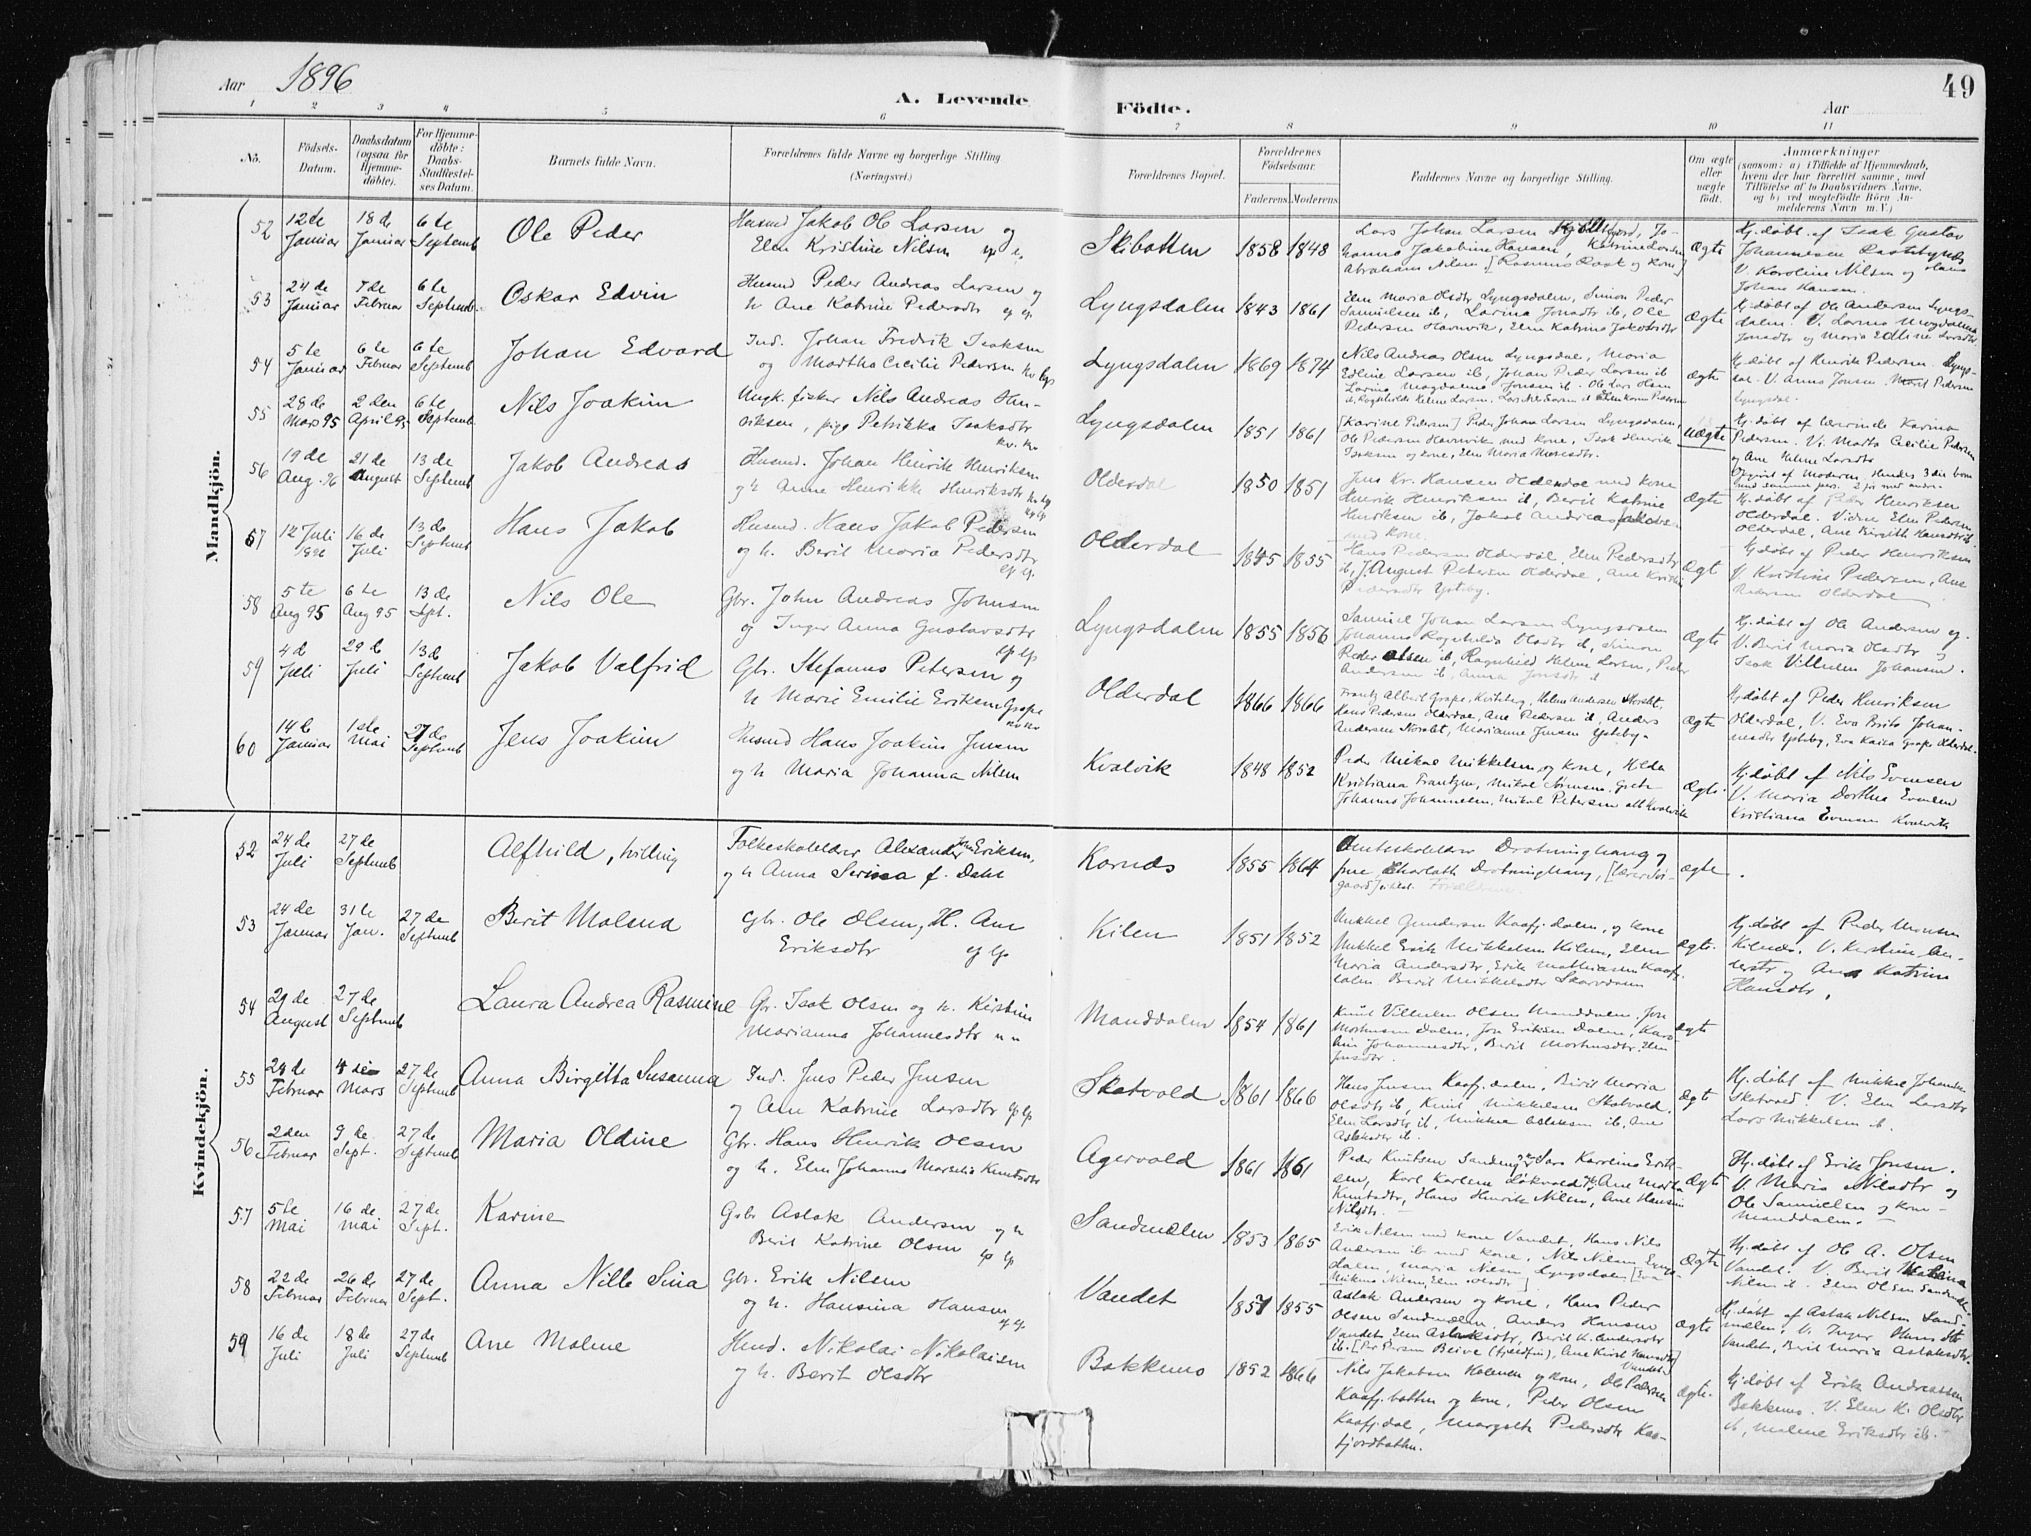 Aar 1896
A. Levende Födte.
Aar
49
1 2 3 4 5 6 7 8 9 10 11
No.
Födsels-Datum.
Daabsdatum (ogsaa for Hjemmedöbte).
For Hjemmedöbte: Daabs-Stadfæstelses Datum.
Barnets fulde Navn.
Forældrenes fulde Navne og borgerlige Stilling. (Næringsvei.)
Forældrenes Bopæl.
Forældrenes Födselsaar.
Faderens. Moderens.
Faddernes Navne og borgerlige Stilling.
Om ægte eller uægte födt.
Anmærkninger
(saasom: a) i Tilfælde af Hjemmedaab, hvem der har forrettet samme, med Tilföielse af to Daabsvidners Navne, og b) ved uægtefödte Börn Anmelderens Navn m. V.)
Mandkjön.
52 12 de Januar 18 de Januar 6 te Septemb Ole Peder
Husmd Jakob Ol. Larsen og
Elen Kristine Nilsen
Skibotten 1858 1848
Lars Johan Larsen
Abraham Nilsen
ægte
Hj. døbt af Isak Gustav
Johannesen
V. Karoline Nilsen og
Johan Hansen.
53 24 de Januar 7 de Februar 6 te Septemb. Oskar Edvin
Husmd Peder Andreas Larsen og
h. Ane Katrine Pedersdtr
Lyngsdalen 1843 1861
Elen Maria Olsdtr Lyngsdalen, Simon Peder
Samuelsen ib, Larina Jonsdtr ib, Ole
Pedersen Havnvik, Elen Katrina Jakobsdtr
ægte
Hj. døbt af Ole Andersen Lyngsdalen. V. Larina Magdalena
Jonsdtr og Maria Edline Larsdtr.
54 5 te Januar 6 te Februar 6 te Septemb Johan Edvard
Ind. Johan Fredrik Isaksen
og Martha Cecilie Pedersen
Lyngsdalen 1869 1874
Nils Andreas Olsen Lyngsdal, Maria
Edline Larsen ib, Johan Peder Larsen ib
Larina Magdalena Jonsen ib. Ole Lars Olsen
ægte
Hj. døbt af Henrik Pedersen Lyngsdal. V. Anna Jonsen Marit Pedersen
Lyngsdal.
55 28 de Mars 95 2 den April 95 6 te Septemb. Nils Joakim
Ungk. fisker Nils Andreas Henriksen, pige Petrikka Isaksdtr
Lyngsdalen 1851 1861
[Karine Pedersen] Peder Johan Larsen Lyngsdalen,
Ole Pedersen Havnvik med kone, Isak Henrik
Isaksen og kone, Elen Maria
uægte
Hj. døbt af lærerinde Karina
Pedersen. V. Marta Cecilie Pedersen
og Ane Helene Larsdtr
Opgivet af Moderen. Hendes 3die barn
56 19 de Aug. 96 21 de August 13 de Septemb Jakob Andreas
Husmd. Johan Henrik Henriksen
og h. Anne Henrikke Henriksdtr
Olderdal 1850 1851
Jens Kr. Hansen Olderdal med kone
Henrik Henriksen ib, Berit Katrine
Henriksen ib, Jakob Andreas
med kone.
ægte
Hj. døbt af Peder Henriksen
Olderdal. Vidne Elen Pedersen
Olderdal, Ane Birgith Hansdtr ib.
57 12 Juli 1896 16 de Juli 13 de Septemb Hans Jakob
Husmd. Hans Jakob Pedersen
og h. Berit Maria Pedersdtr
Olderdal 1845 1855
Hans Pedersen Olderdal, Elen Pedersdtr
ib, J. August Petersen Olderdal, Ane
Pedersdtr Ysteby.
ægt
Hj. døbt af Peder Henriksen
V. Kristine Pedersen, Ane
Pedersen Olderdal
58 5 te Aug 95 6 te Aug 95 13 de Sept. Nils Ole
Gbr. John Andreas Johnsen
og Inger Anna Gustavsdtr
Lyngsdalen 1855 1856
Samuel Johan Larsen Lyngsdalen
Johanna Ragnhilda Olsdtr ib, Simon
Peder Olsen ib, Ragnhild Helene Larsen, Peder
Andersen ib, Anna Jonsdtr ib
ægte
Hj. døbt af Ole Andersen og
V. Berit Maria Olsdtr og
Isak Vilhelm Johansen.
59 4 d Juli 29 d Juli 13 d Septemb Jakob Valfrid
Gbr. Stefanus Petersen og
h Marie Emilie Eriksen Grape
Olderdal 1866 1866
Frantz Albert Grape, Kviteberg, Helene Andersen Storslet,
Hans Pedersen Olderdal, Ane Pedersen ib, Anders
Andersen Norslet, Marianne Jensen Ysteby.
ægte
Hj. døbt af Peder Henriksen
Olderdal, V. Eva Brita Johannesdtr Ysteby, Eva Kaisa Grape Olderdal.
60 14 d Januar 1ste Mai 27 de Septemb Jens Joakim
Husmd Hans Joakim Jensen
og h Maria Johanna Nilsen
Kvalvik 1848 1852
Peder Mikal Mikkelsen og kone, Helda
Kristiana Frantzen, Mikal Simonsen, Grete
Johanna Johannesen, Mikal Petersen alle Kvalvik
ægte.
Hj. døbt af Nils Evensen
V. Maria Dorthea Evensen
Kristiana Evensen Kvalvik
Kvindekjön.
52 24 de Juli 27 de Septemb Alfhild, tvilling
Folkeskolelærer Alexander Eriksen,
og h Anna Serina f. Dahl
Kornæs 1855 1864
Amtsskolelærer Drotninghaug og
frue Charlotte Drotninghaug,
ægte
53 24 de Januar 31 te Jan. 27 de Septemb Berit Malena
Gbr. Ole Olsen, H. Ane
Eriksdtr
Kilen 1851 1852
Mikkel Gundersen Kaafj.dalen, og kone
Mikkel Erik Mikkelsen Kilen, Elen
Maria Andersdtr, Erik Mathiasen Kaafj.
dalen. Berit Mikkelsdtr Skarvdann
ægte.
Hj. døbt af Peder Monsen
V. Kirstine Andersdtr og Ane Katrine
Hansdtr.
54 29 de August 27 de Septemb Laura Andrea Rasmine
Gr. Isak Olsen og h. Kirstine
Marianna Johannesdtr
Manddalen 1854 1861
Knut Vilhelm Olsen Manddalen, Jon
Mortensen Dalen, Jon Eriksen Dalen, Karoline Johannesdtr, Berit Mortensdtr, Elen
Jensdtr.
ægt
55 24 de Februar 4 de Mars 27 de Septemb Anna Birgitta Susanna
Ind. Jens Peder Jensen
og Ane Katrine Larsdtr
Skatvold 1861 1866
Hans Jensen Kaafj.dalen, Berit Maria
Olsdtr ib, Knut Mikkelsen Skatvold,
Elen Larsdtr ib, Mikkel Aslaksen ib, Ane
Aslaksdtr ib.
ægt
Hj. døbt af Mikkel Johansen
Skatvold. V. Elen Larsdtr
Lars Mikkelsen ib.
56 2 den Februar 9 de Sept. 27 de Septemb Maria Oldine
Gbr. Hans Henrik Olsen
og h. Elen Johanna Marselie Knutsdtr
Agervold 1861 1861
Peder Knutsen Sandeng, Sara Karolina Eriksen, Karl Karlsen Løkvold, Ane Martha
Knutsdtr, Hans Henrik Nilsen, Ane Hansine
Nilsdtr.
ægt
Hj. døbt af Erik Jonsen.
V. Maria Nilsdtr og
Ole Samuelsen og kone
Manddalen.
57 5 te Mai 16 de Mai 27 de Sept. Karine
Gbr Aslak Andersen og h
Berit Katrine Olsen
Sandmælen 1853 1865
Erik Nilsen med kone Vandet, Hans Nils
Andersen ib med kone, Nils Nilsen Lyngsdalen, Maria Nilsen Lyngsdalen
ægte
Hj. døbt af Ole A. Olsen
Vandet. V. Berit Katrina
Nilsen ib. Elen Olsen Sandmælen
58 22 de Februar 26 de Februar 27 de Sept. Anna Nille Sina
Gbr. Erik Nilsen
og h. Hansina Hansen
Vandet 1851 1855
Aslak Andersen og kone, Hans Peder
Olsen Sandmælen, Anders Hansen
Vandet, Elen Aslaksdtr, Berit K. Andersdtr
ægte
Hj. døbt af Aslak Nilsen Sandmælen, V. Inger Hansdtr
Vandet, Berit Maria Aslaksdtr.
59 16 de Juli 18 de Juli 27 de Septemb Ane Malene
Hmd. Nikolai Nikolaisen
og h. Berit Olsdtr
Bakkemo 1852 1866
Nils Jakobsen Holmen og kone, Ole Pedersen
Kaafj.botten og kone, Peder Olsen
Kaafj.dal, Margith Pedersdtr Kaafjordbotten.
ægte.
Hj. døbt af Erik Andreassen
Bakkemo. V. Elen K. Olsdtr
ib, Malene Eriksdtr ib.